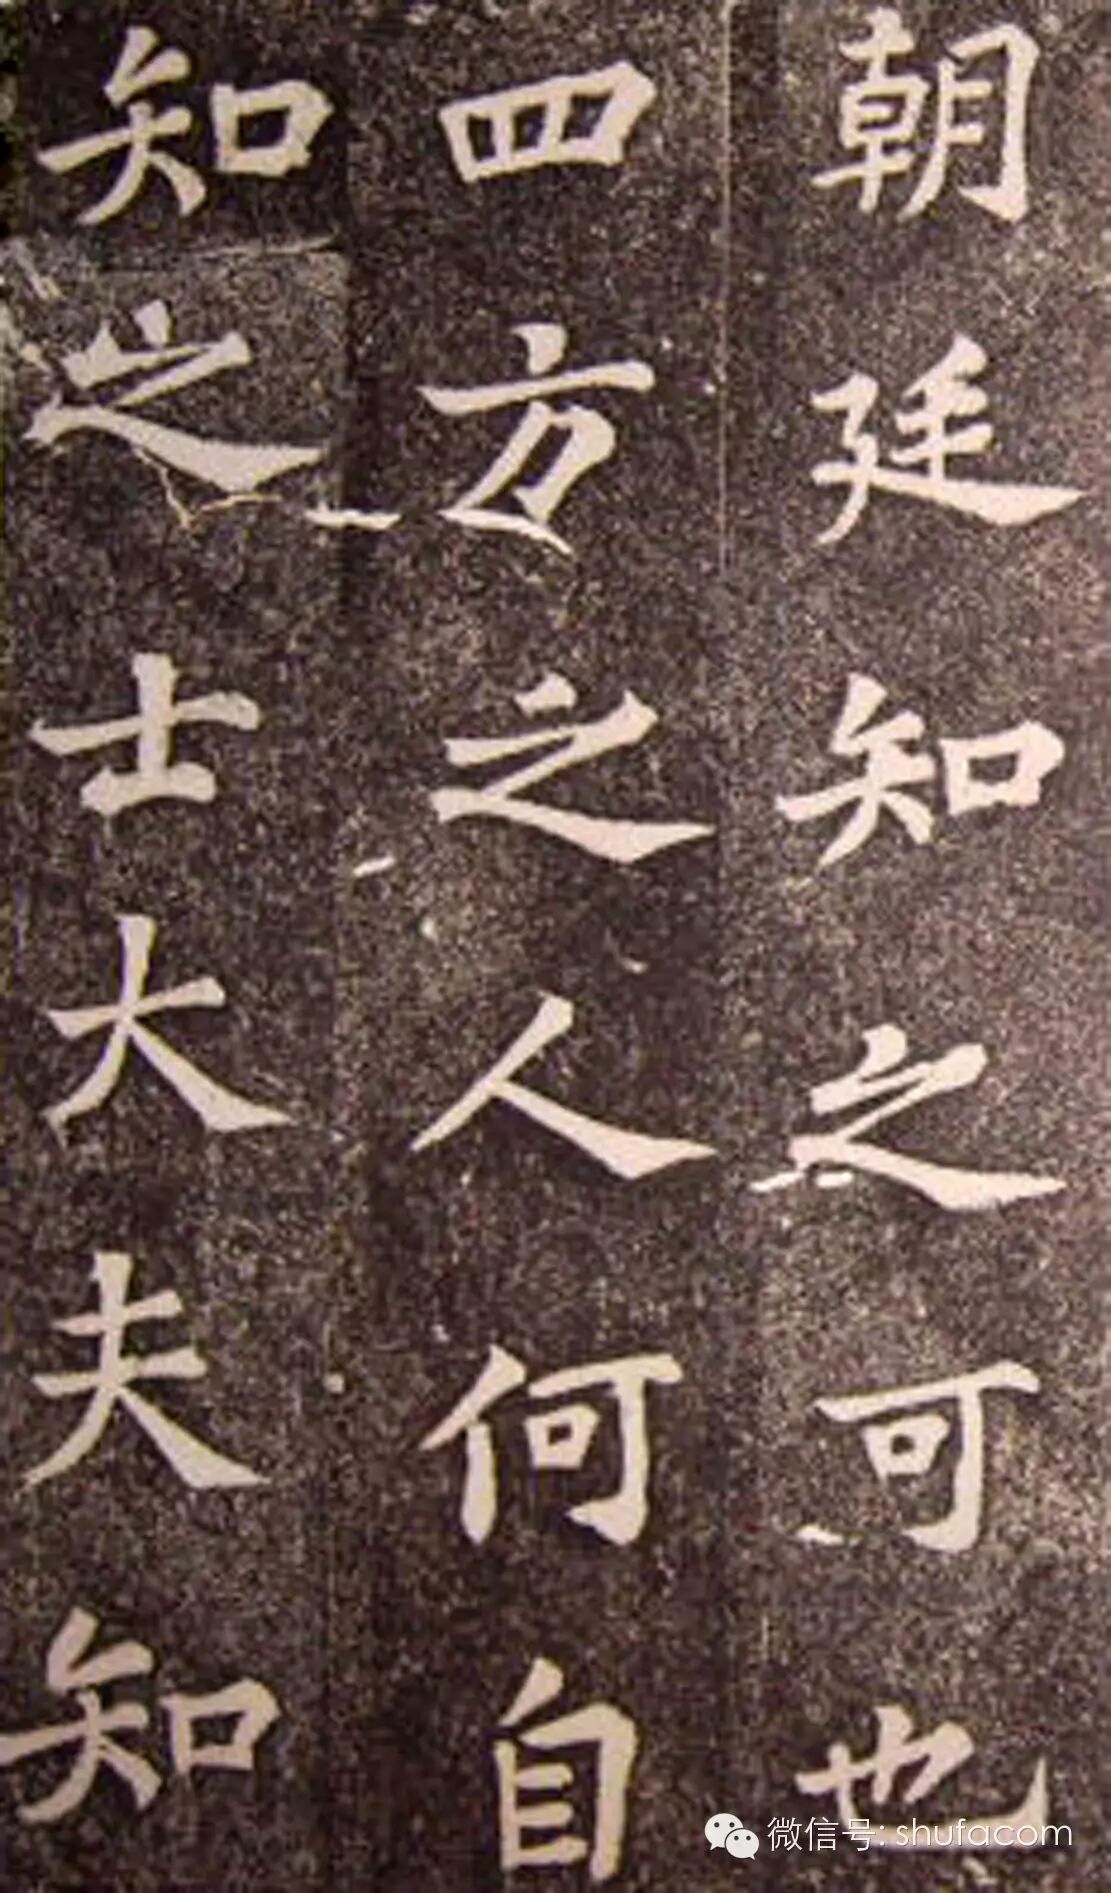 朝廷知之可也
四方之人何自
知之士大夫知
微信号: shufacom